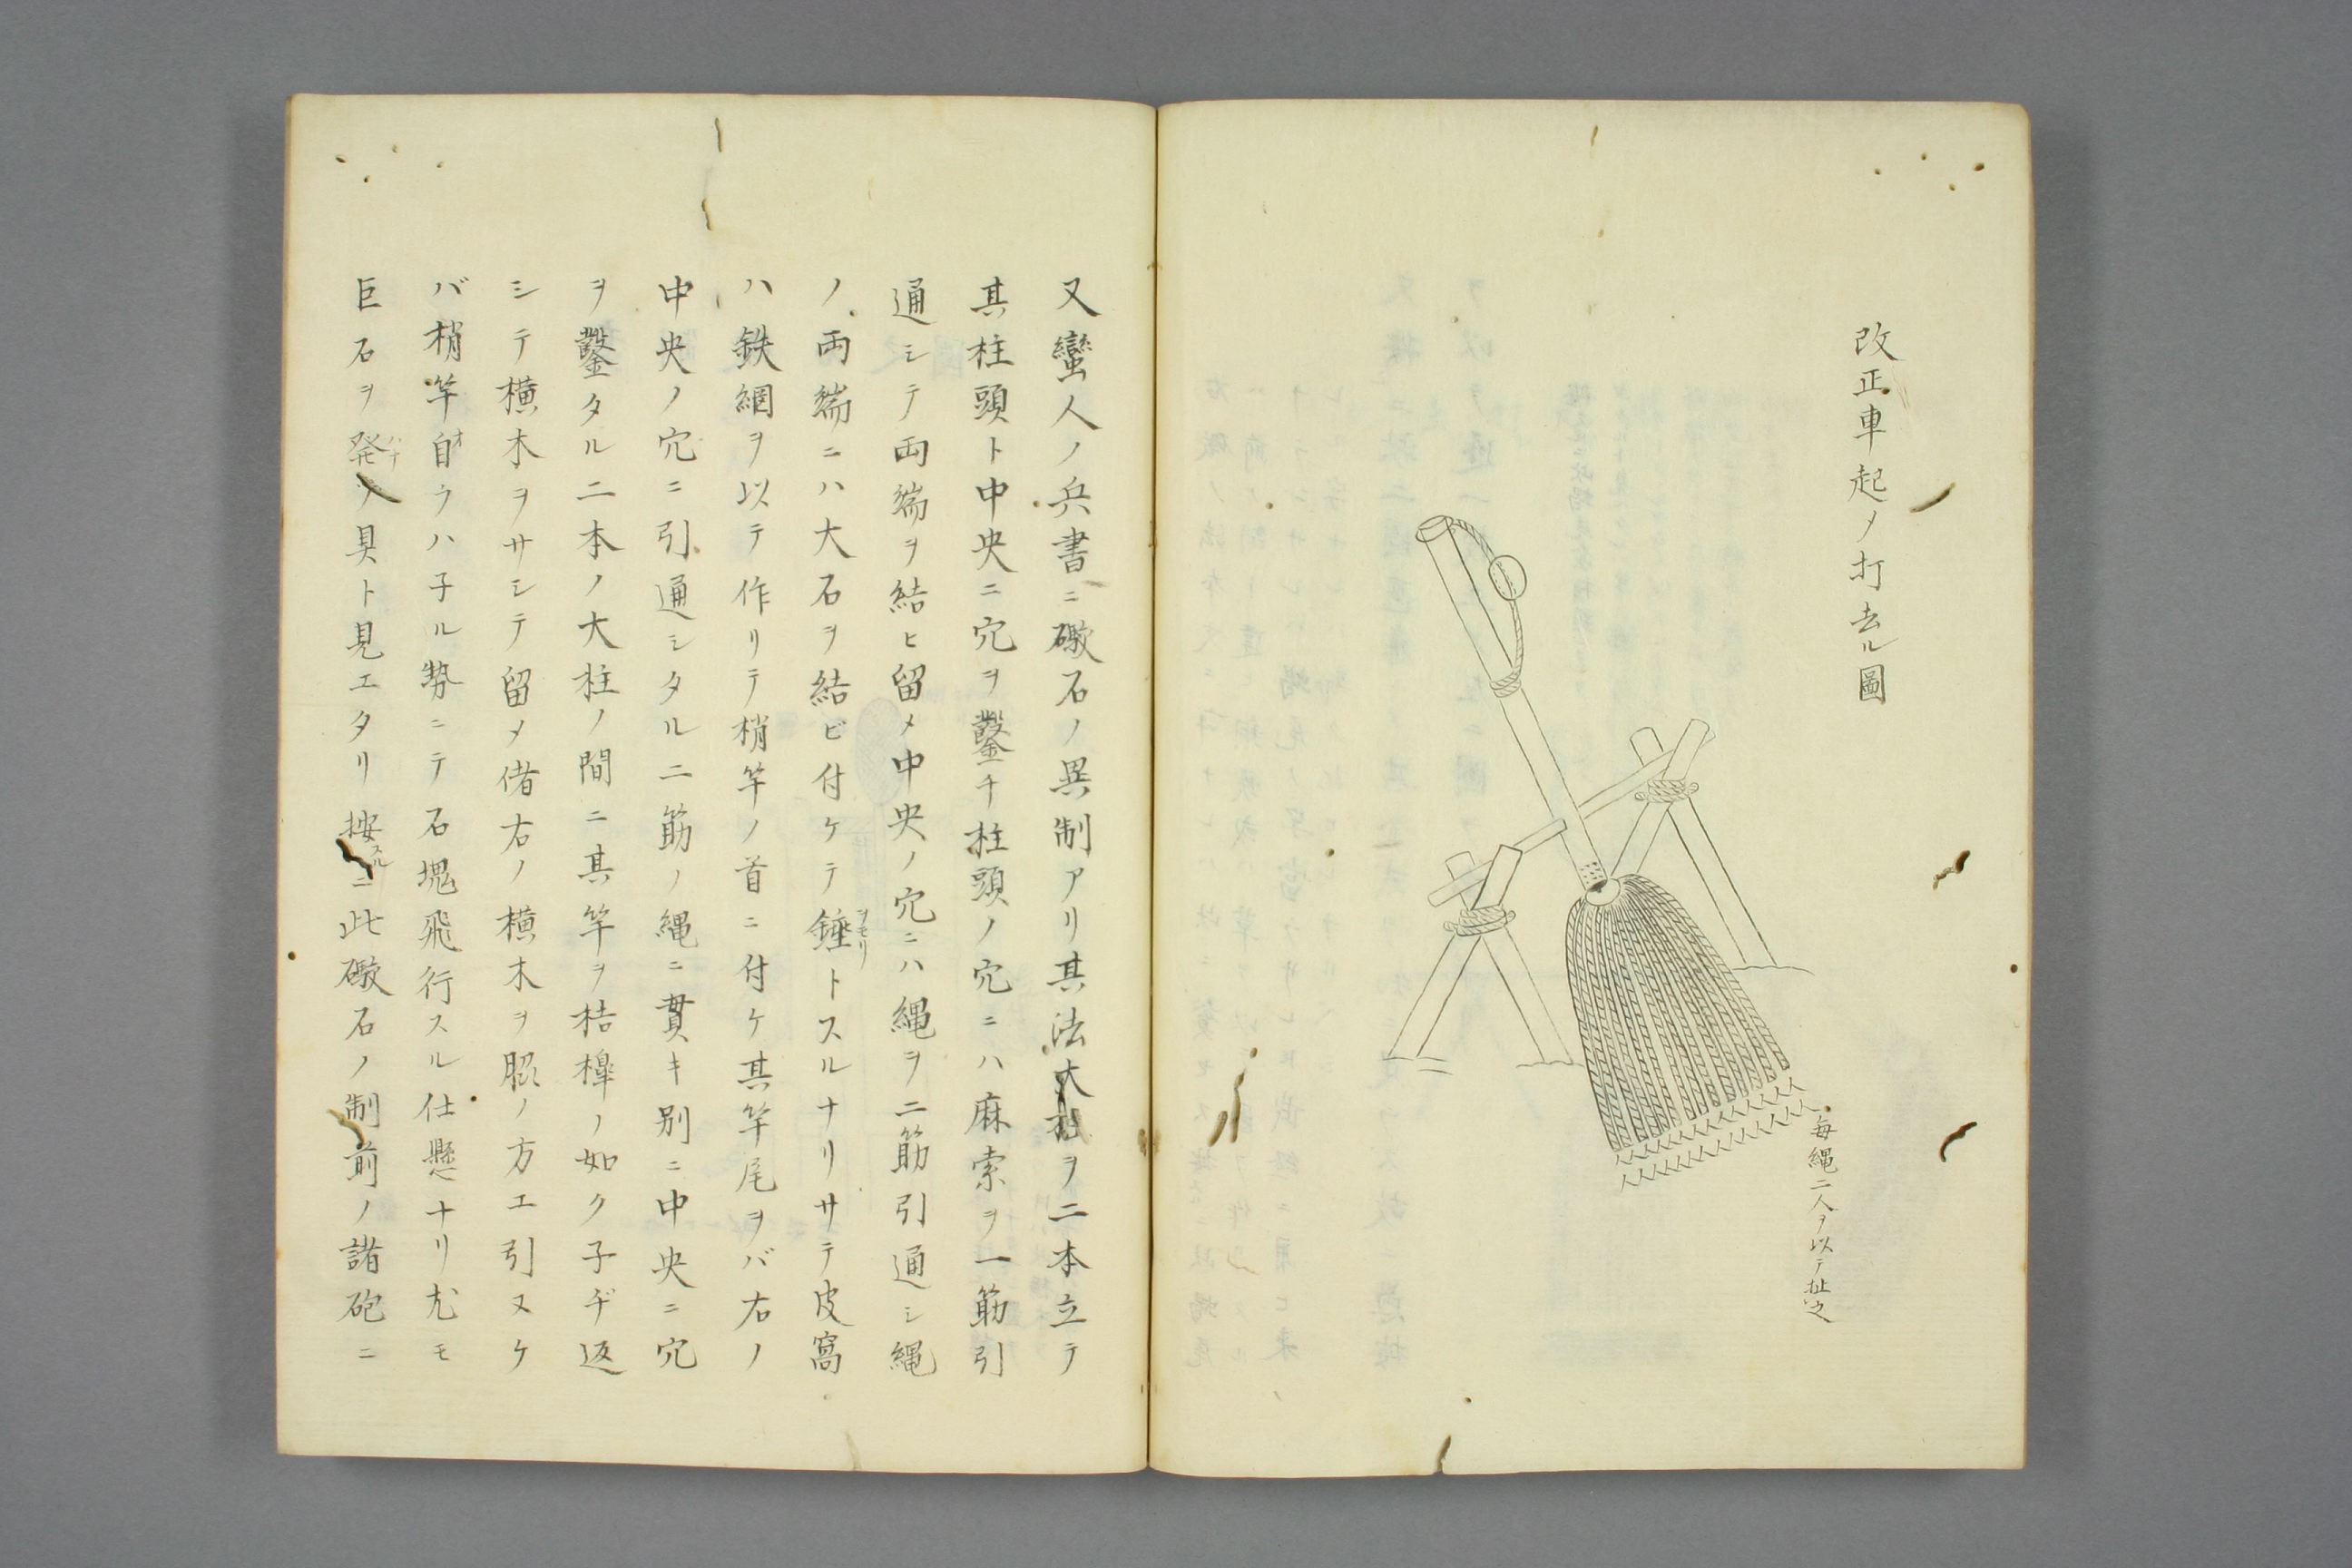 改正車起ノ打去ル圖
毎縄二人ヲ以テ扯之
又蠻人ノ兵書ニ礮石ノ異制アリ其法大柱ヲ二本立テ
其柱頭ト中央ニ穴ヲ鑿チ柱頭ノ穴ニハ麻索ヲ一筋引
通シテ両端ヲ結ヒ留メ中央ノ穴ニハ縄ヲ二筋引通シ縄
ノ両端ニハ大石ヲ結ビ付ケテ錘ヲモリトスルナリサテ皮窩
ハ鉄網ヲ以テ作リテ梢竿ノ首ニ付ケ其竿尾ヲバ右ノ
中央ノ穴ニ引通シタル二筋ノ縄ニ貫キ別ニ中央ニ穴
ヲ鑿タル二本ノ大柱ノ間ニ其竿ヲ桔槹ノ如ク子ヂ返
シテ横木ヲサシテ留メ偖右ノ横木ヲ脇ノ方エ引ヌケ
バ梢竿自オウハ子ル勢ニテ石塊飛行スル仕懸ナリ尤モ
巨石ヲ発ハナツ具ト見エタリ按スルニ此礮石ノ制前ノ諸砲ニ